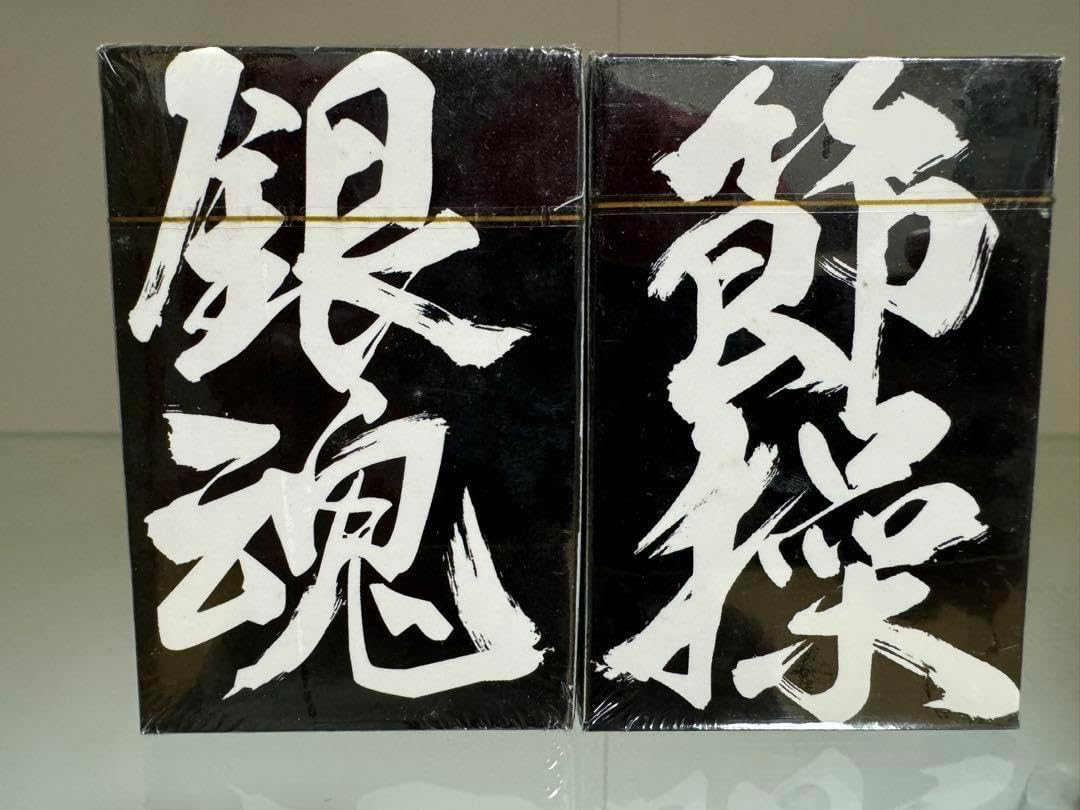 銀魂
節操